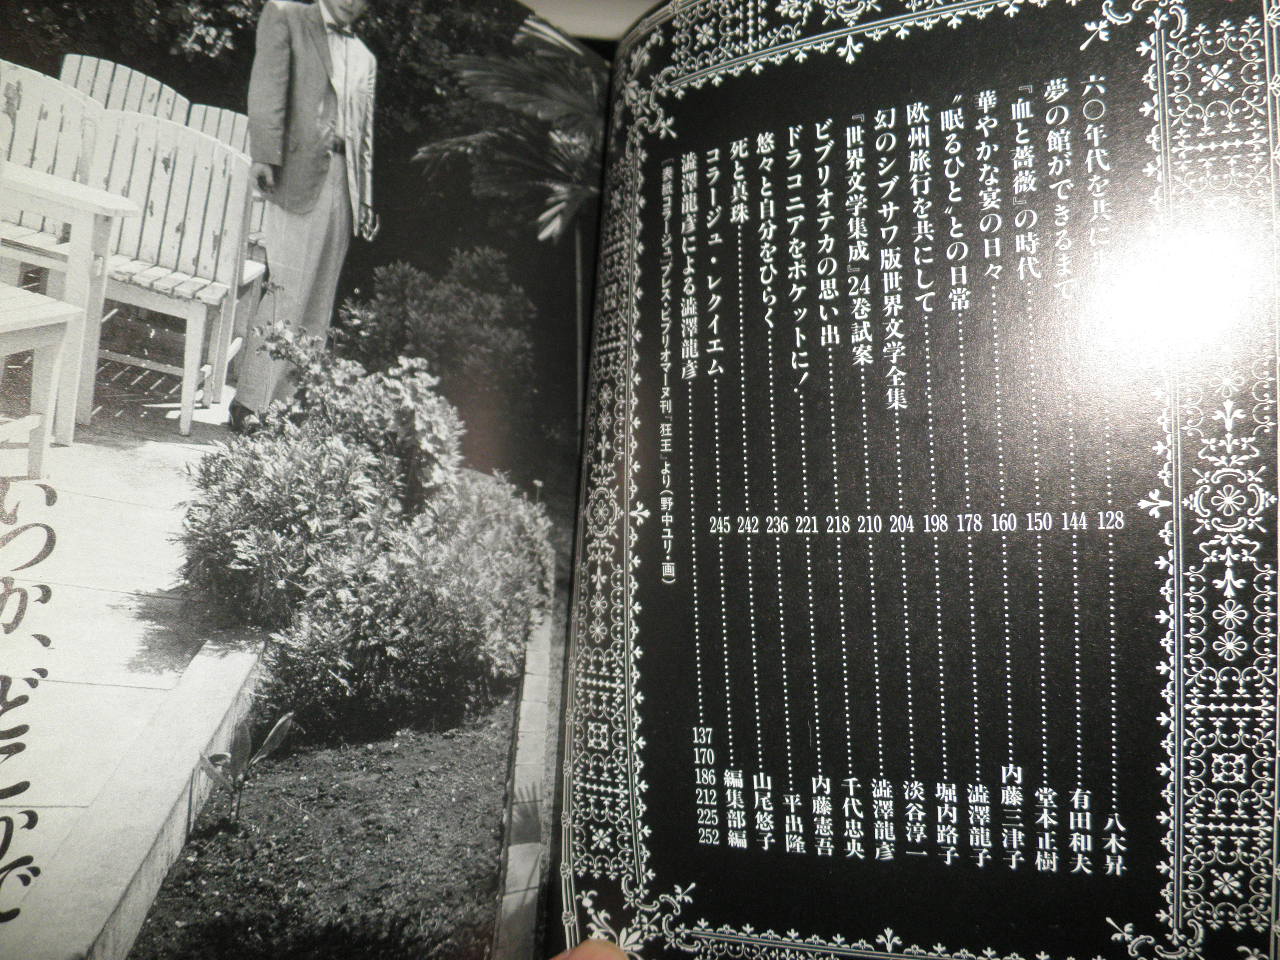 六〇年代を共に
128
八木昇
夢の館ができるまで
144
有田和夫
『血と薔薇』の時代
150
堂本正樹
華やかな宴の日々
160
内藤三津子
“眠るひと”との日常
178
澁澤龍子
欧州旅行を共にして
198
堀内路子
幻のシブサワ版世界文学全集
204
淡谷淳一
『世界文学集成』24巻試案
210
澁澤龍彦
ビブリオテカの思い出
218
千代忠央
ドラコニアをポケットに！
221
内藤憲吾
悠々と自分をひらく
236
平出隆
死と真珠
242
山尾悠子
コラージュ・レクイエム
245
編集部編
澁澤龍彦による澁澤龍彦
137
170
186
212
225
252
［表紙コラージュ］プレス・ビブリオマーヌ刊『狂王』より（野中ユリ・画）
いつか、どこかで